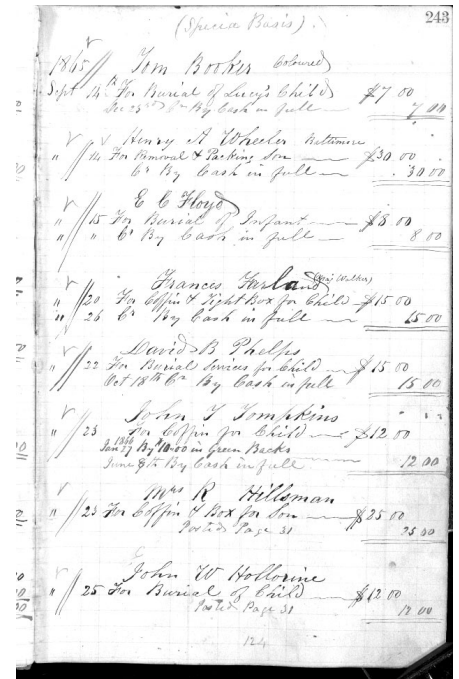 243
(Specie Basis).
1865 Tom Booker Coloured
Sept 14 For Burial of Lucy's Child $7 00
Dec 23rd Cr By Cash in full 7 00
Henry A Wheeler Baltimore
" 14 For Removal & Packing Son $30 00
Cr By Cash in full 30 00
E C Floyd
" 15 For Burial of Infant $8 00
" " Cr By Cash in full 8 00
Frances Farland (Maj Walker)
" 20 For Coffin & Tight Box for Child $15 00
" 26 Cr By Cash in full 15 00
David B Phelps
" 22 For Burial Services for Child $15 00
Oct 18th Cr By Cash in full 15 00
John T Tompkins
" 23 For Coffin for Child $12 00
1866
Jan 27 By $10.00 in Green Backs
June 9th By Cash in full 12 00
Mrs R Hillsman
" 23 For Coffin & Box for Son $25 00
Posted Page 31 25 00
John W Hollorine
" 25 For Burial of Child $12 00
Posted Page 31 12 00
124